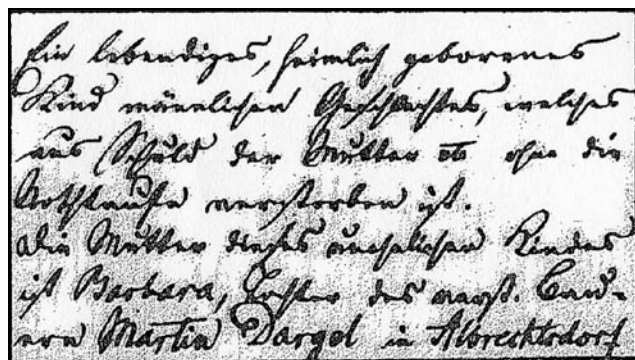 Ein lebendiges, heimlich geborenes
Kind männlichen Geschlechtes, welches
aus Schuld der Mutter ohne die
Nothtaufe verstorben ist.
Die Mutter dieses unehelichen Kindes
ist Barbara, Tochter des verst. Bau-
ern Martin Dargel in Albrechtsdorf